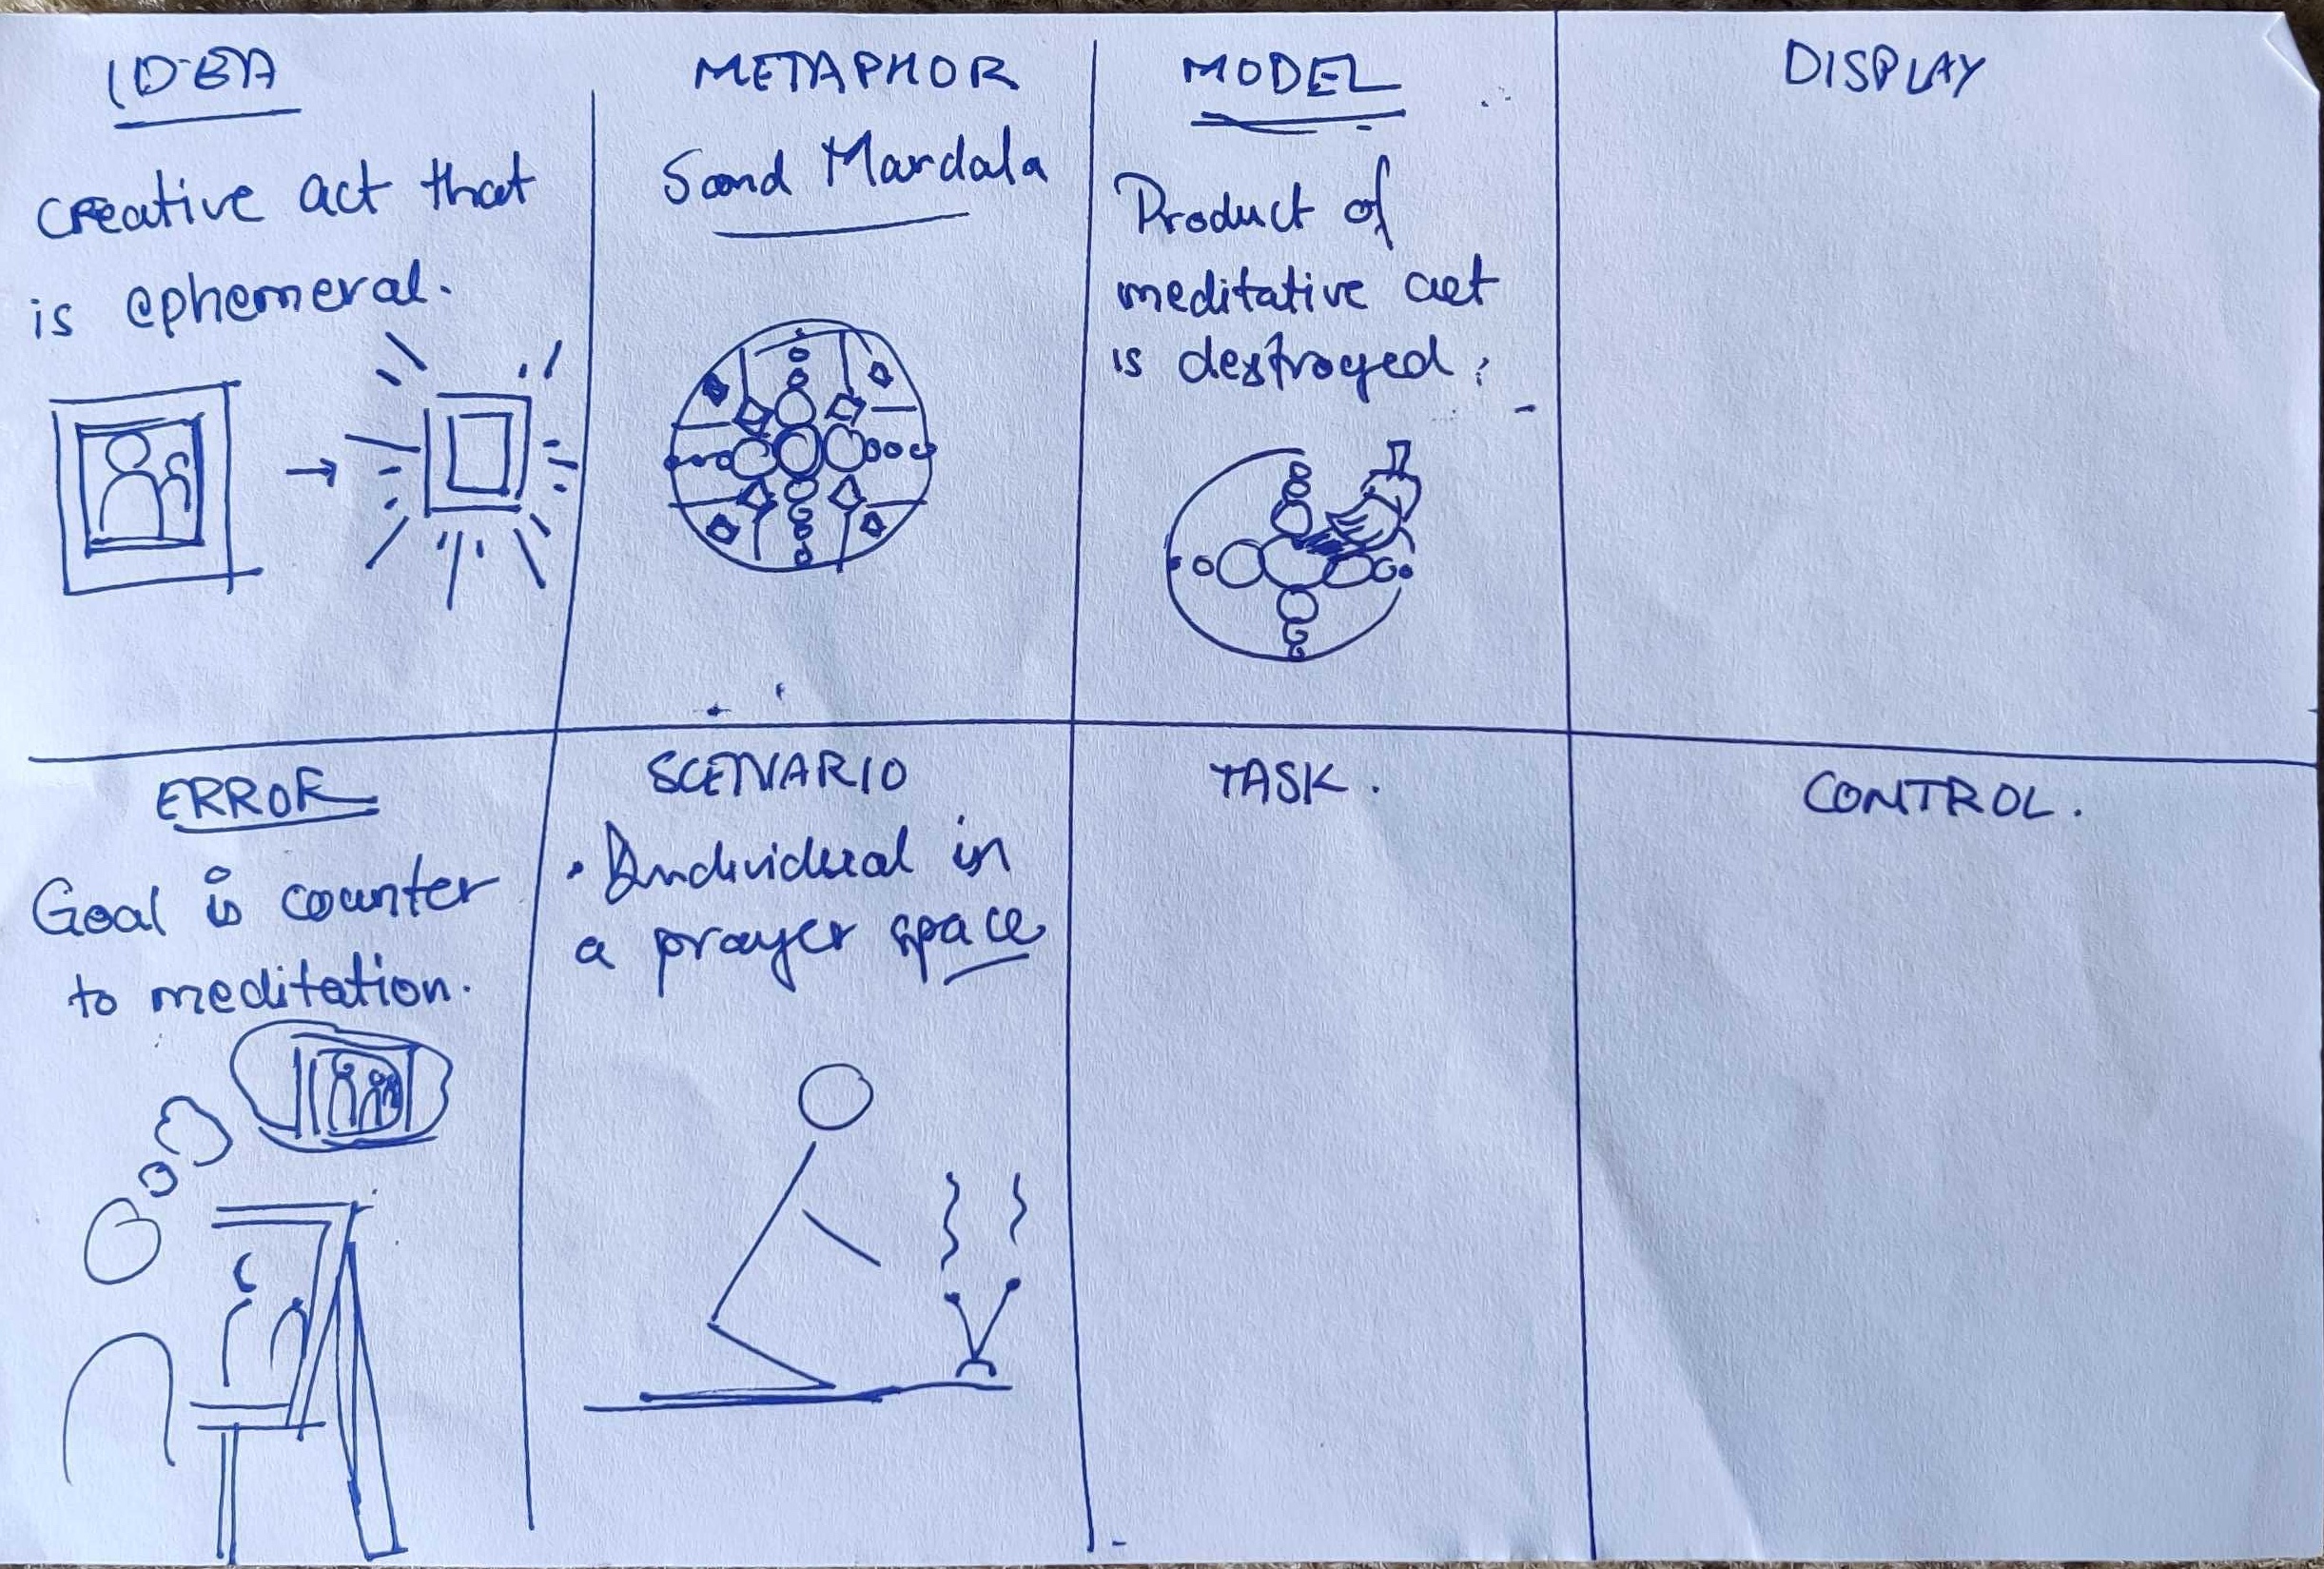 IDEA
Creative act that
is ephemeral.
METAPHOR
Sand Mandala
MODEL
Product of
meditative act
is destroyed.
DISPLAY
ERROR
Goal is counter
to meditation.
SCENARIO
• Individual in
a prayer space
TASK.
CONTROL.